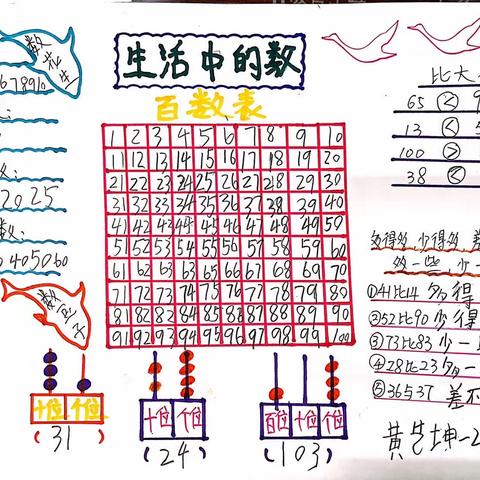 生活中的数
百数表
数花生
678910
2025
数:
405060
数豆子
1 2 3 4 5 6 7 8 9 10
11 12 13 14 15 16 17 18 19 20
21 22 23 24 25 26 27 28 29 30
31 32 33 34 35 36 37 38 39 40
41 42 43 44 45 46 47 48 49 50
51 52 53 54 55 56 57 58 59 60
61 62 63 64 65 66 67 68 69 70
71 72 73 74 75 76 77 78 79 80
81 82 83 84 85 86 87 88 89 90
91 92 93 94 95 96 97 98 99 100
比大
65 <
13 <
100 >
38 <
多得多,少得多,差
多一些,少一
①41比14多得
②52比90少得
③73比83少一
④28比23多一
⑤36与37差不
十位 个位
(31)
十位 个位
(24)
百位 十位 个位
(103)
黄艺坤-2